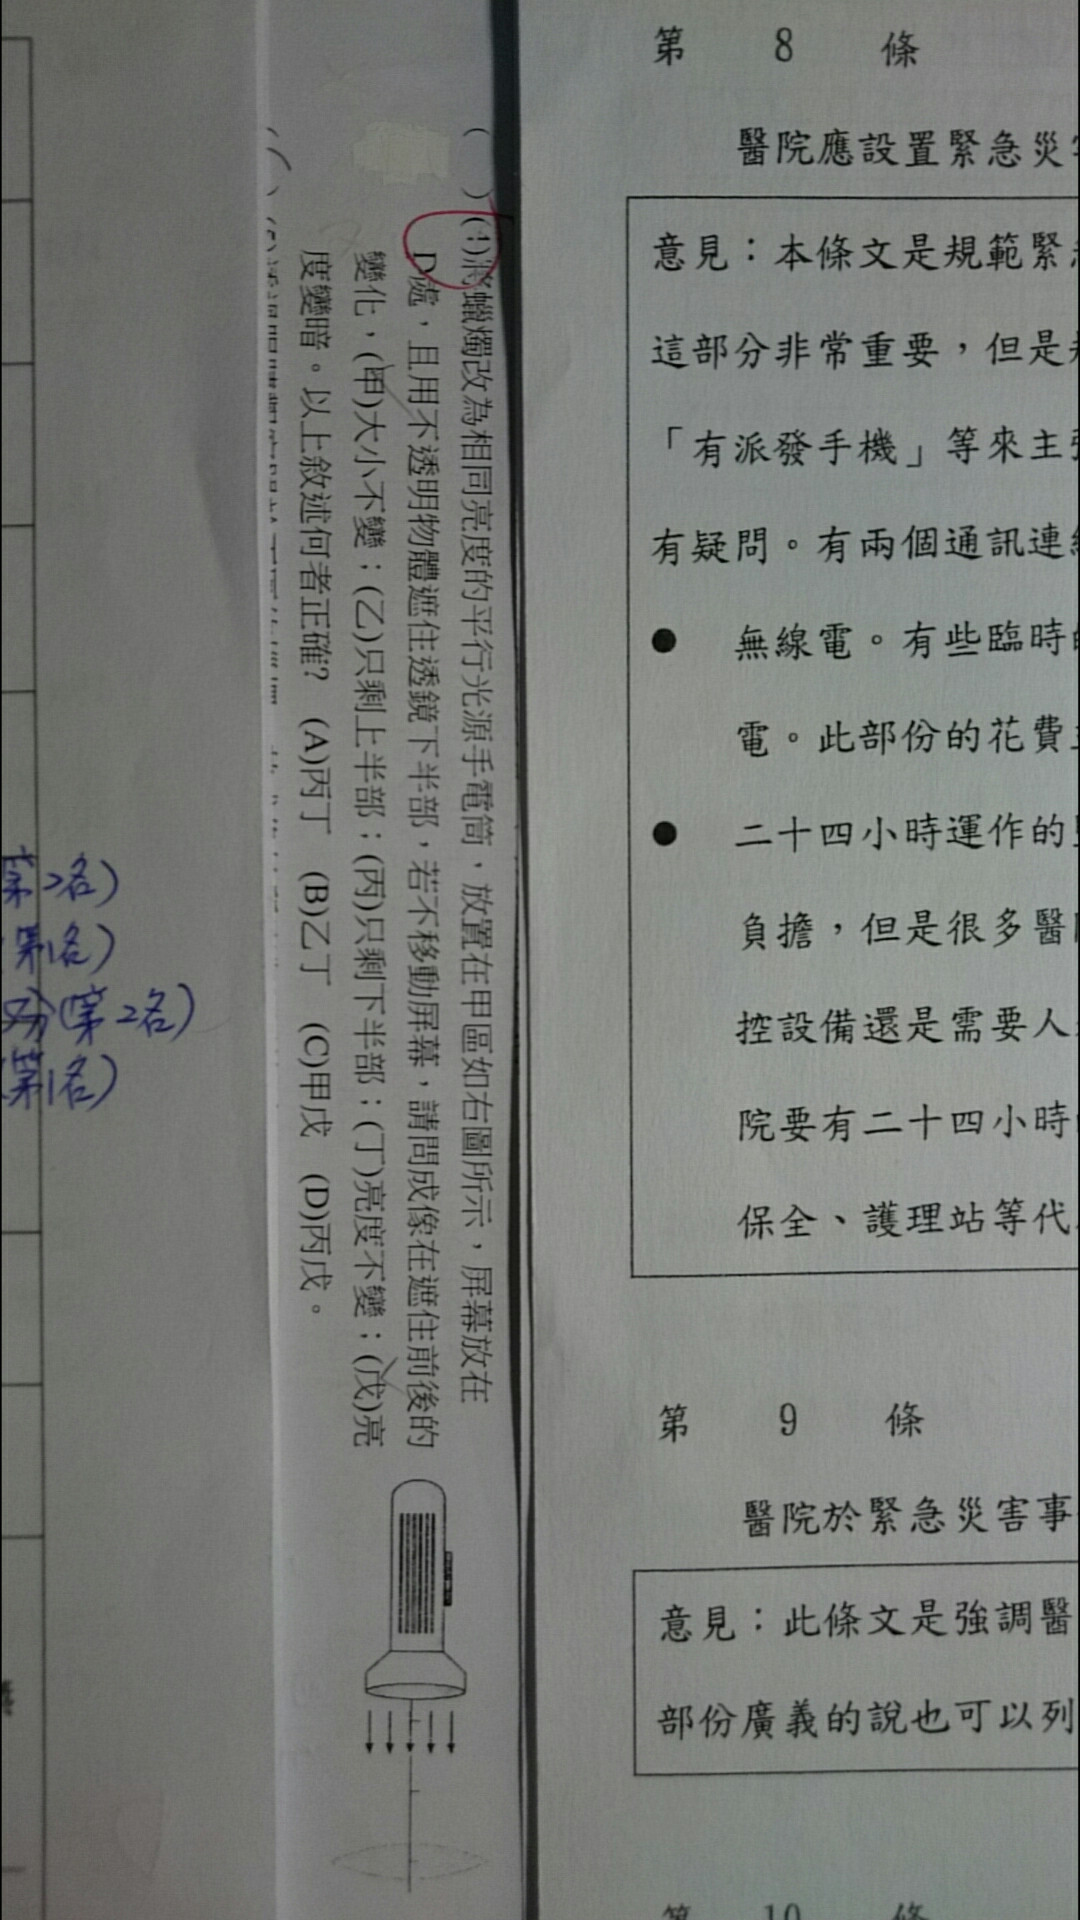 ( )(4)將蠟燭改為相同亮度的平行光源手電筒，放置在甲區如右圖所示，屏幕放在
D處，且用不透明物體遮住透鏡下半部，若不移動屏幕，請問成像在遮住前後的
變化，(甲)大小不變；(乙)只剩上半部；(丙)只剩下半部；(丁)亮度不變；(戊)亮
度變暗。以上敘述何者正確？ (A)丙丁 (B)乙丁 (C)甲戊 (D)丙戊。
第 8 條
醫院應設置緊急災
意見：本條文是規範緊
這部分非常重要，但是
「有派發手機」等來主
有疑問。有兩個通訊連
● 無線電。有些臨時
電。此部份的花費
● 二十四小時運作的
負擔，但是很多醫
控設備還是需要人
院要有二十四小時
保全、護理站等代
第 9 條
醫院於緊急災害事
意見：此條文是強調醫
部份廣義的說也可以列
第 10 條
(第2名)
(第1名)
(第2名)
(第1名)